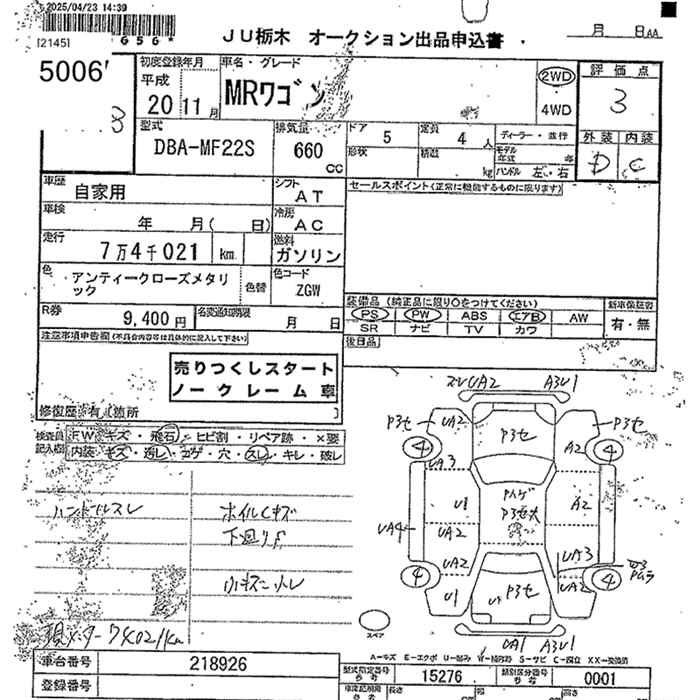 2025/04/23 14:39
[2145]
656*
JU栃木 オークション出品申込書
月 日AA
5006
初度登録年月
平成
20 11月
車名・グレード
MRワゴン
2WD
4WD
評価点
3
外装 内装
D C
型式
DBA-MF22S
排気量
660
CC
ドア 5
定員 4人
ディーラー・並行
形状
積載
kg
モデル年式 年
ハンドル 左・右
車歴
自家用
シフト
AT
セールスポイント(正常に機能するものに限ります)
車検
年 月( 日)
冷房
AC
走行
7万4千021 km
燃料
ガソリン
色
アンティークローズメタリック
色替
色コード
ZGW
R券
9,400円
名変通知期限
月 日
装備品(純正品に限り○をつけてください)
PS PW ABS エアB AW
SR ナビ TV カワ
新車保証書
有・無
後日品
注意事項申告欄(不具合内容等は具体的に記入して下さい)
売りつくしスタート
ノークレーム車
修復歴 有[箇所 ]
検査員記入欄
FW キズ・飛石・ヒビ割・リペア跡・×要
内装 キズ・汚レ・コゲ・穴・スレ・キレ・破レ
ハンドルスレ
ホイルCキズ
下廻りS
小キズ
A3U1
P3セ
UA2
4
P3セ
P3セ
A2
4
UA3
U1
P3セ大
A2
UA4
UA2
UA2
UA3
4
U1
P3セ
UA2
4
スペア
UA1 A3U1
A-キズ E-エクボ U-凹み W-補修跡 S-サビ C-腐食 XX-交換済
車台番号
218926
登録番号
型式指定番号 参考
15276
類別区分番号 参考
0001